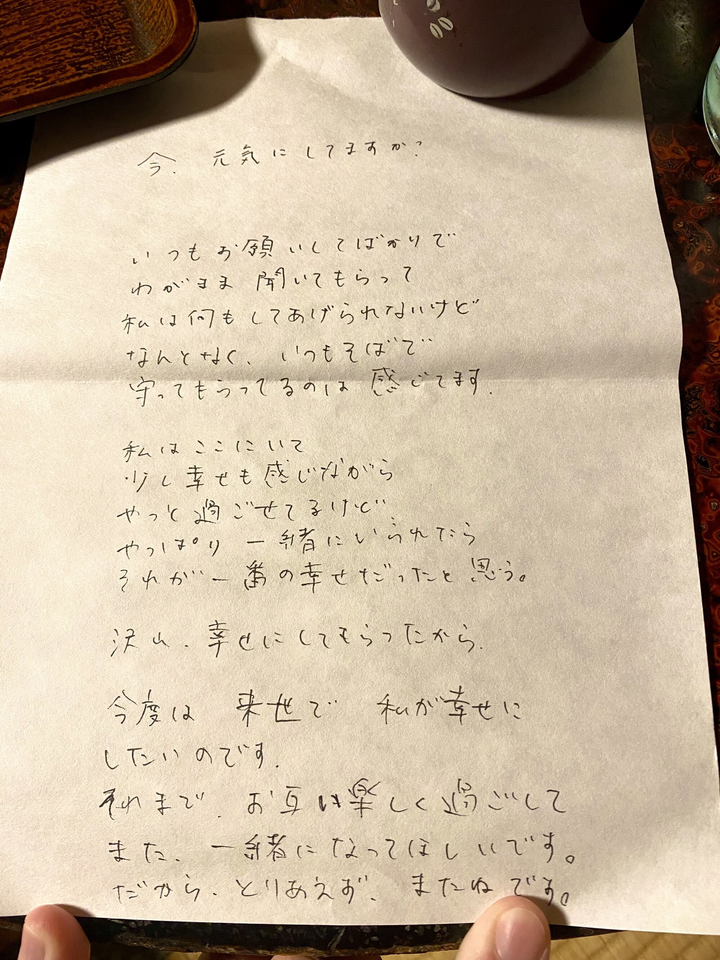 今、元気にしてますか?
いつもお願いしてばかりで
わがまま聞いてもらって
私は何もしてあげられないけど
なんとなく、いつもそばで
守ってもらってるのは感じてます。
私はここにいて
少し幸せも感じながら
やっと過ごせてるけど、
やっぱり一緒にいられたら
それが一番の幸せだったと思う。
沢山、幸せにしてもらったから、
今度は 来世で 私が幸せに
したいのです。
それまで、お互い楽しく過ごして
また、一緒になってほしいです。
だから、とりあえず、またねです。